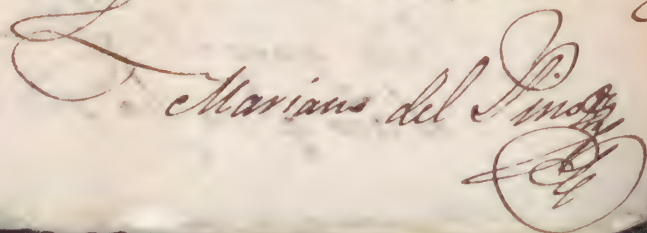 Mariano del Pino